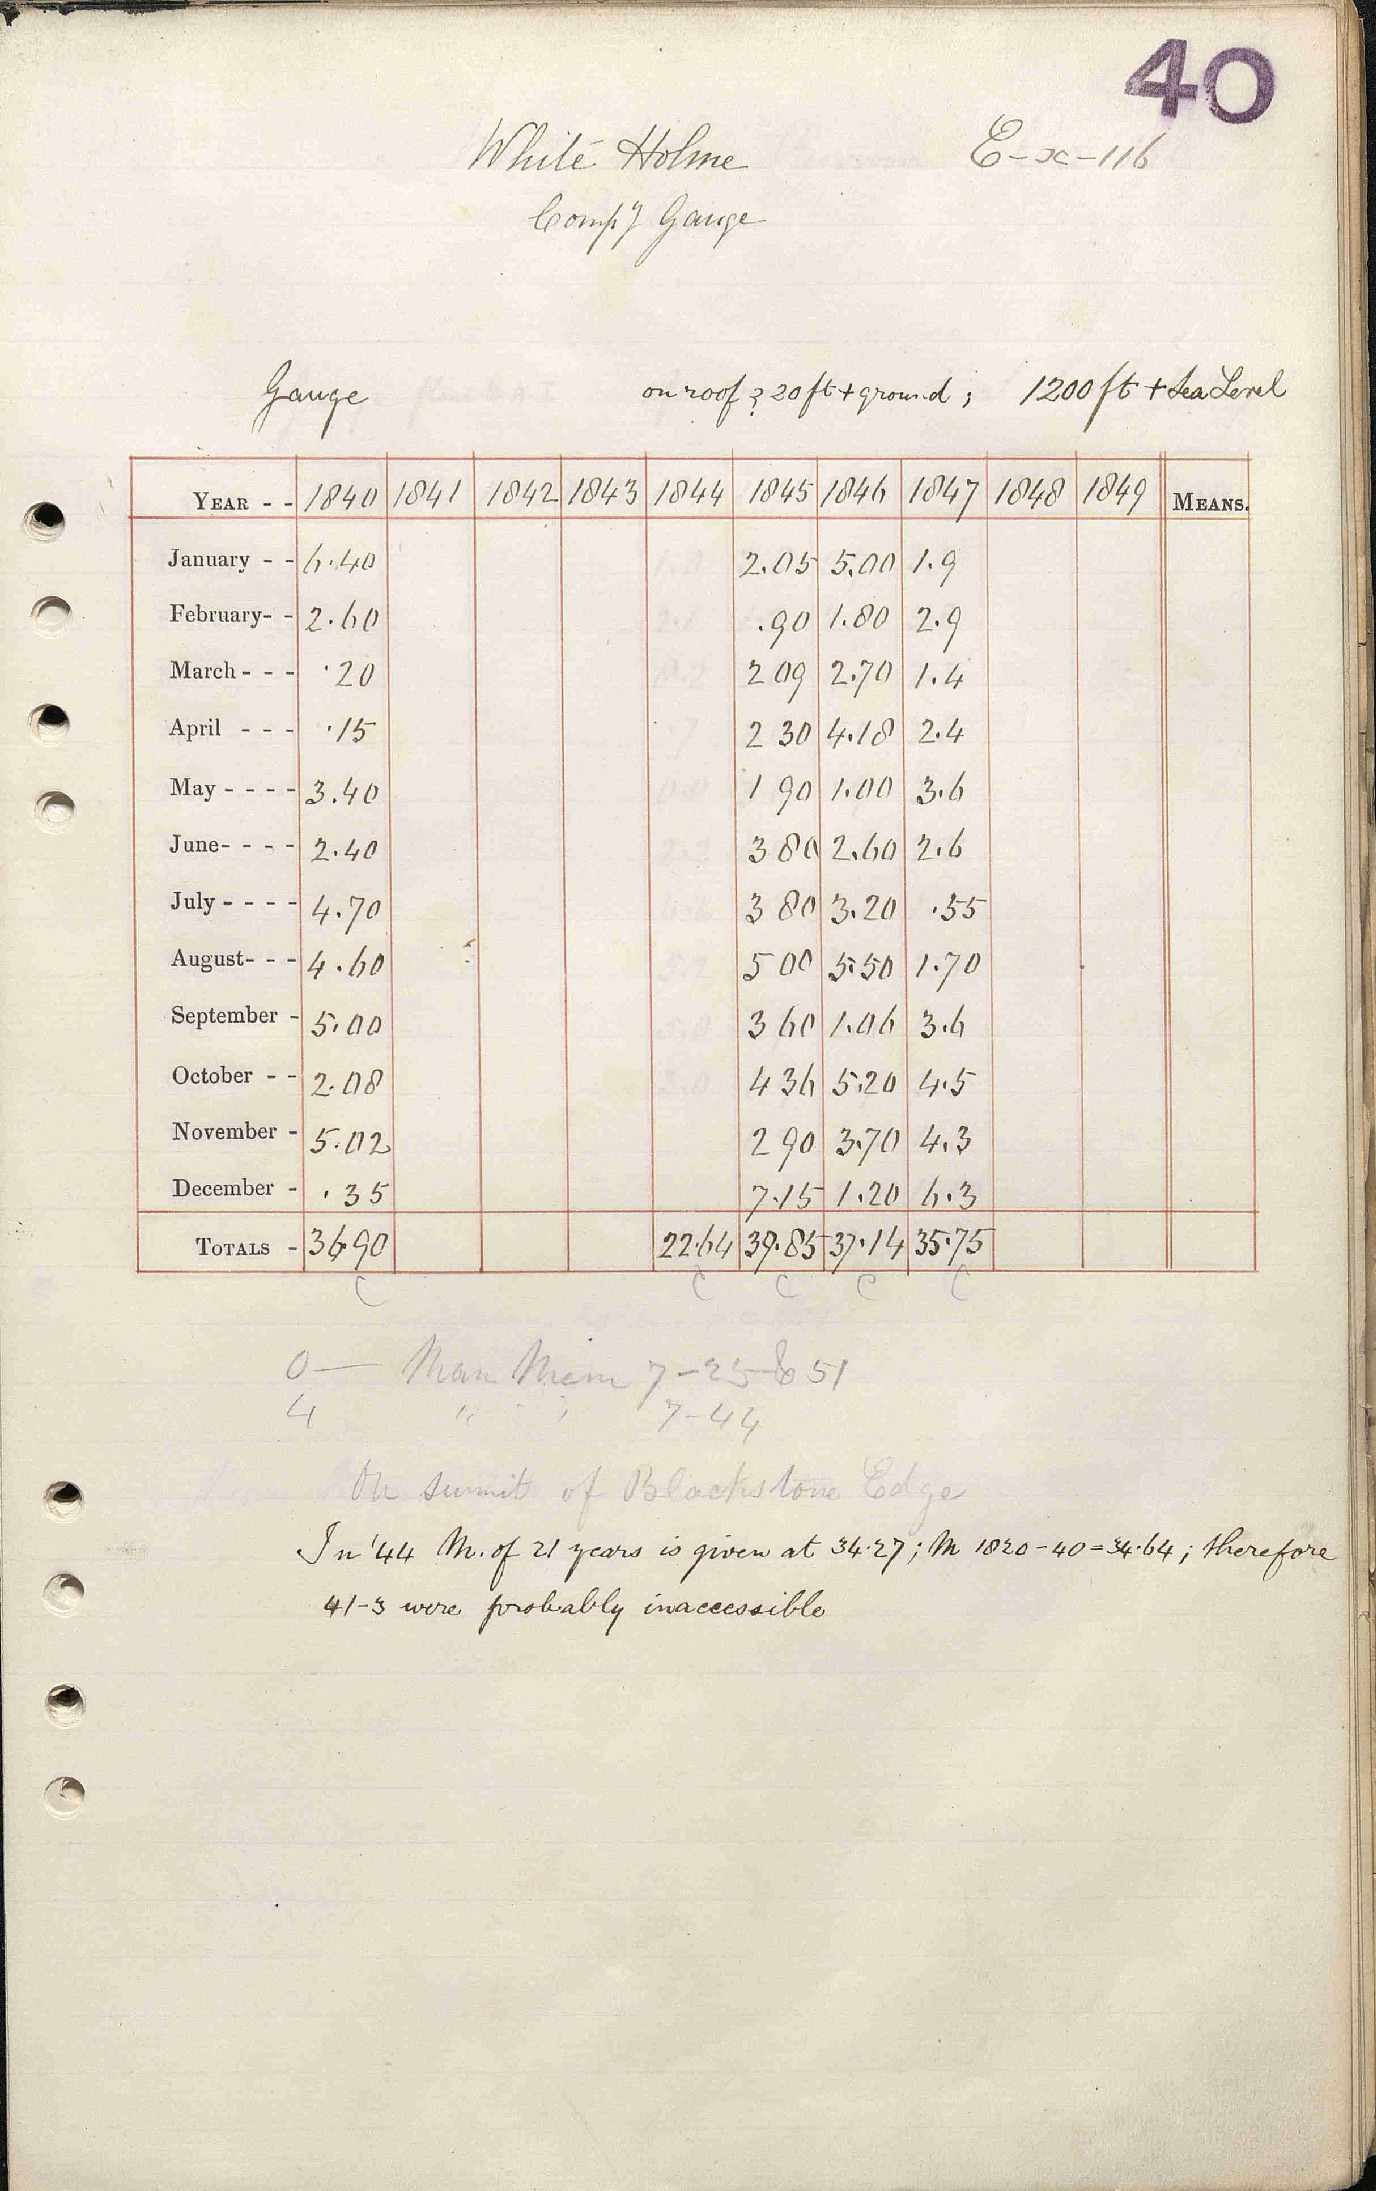 40
White Holme E-x-116
Compy Gauge
Gauge on roof ? 20 ft + ground; 1200 ft + Sea Level
YEAR - - 1840 1841 1842 1843 1844 1845 1846 1847 1848 1849 MEANS.
January - - 6.40 2.05 5.00 1.9
February- - 2.60 .90 1.80 2.9
March - - - .20 2 09 2.70 1.4
April - - - .15 2 30 4.18 2.4
May - - - - 3.40 1 90 1.00 3.6
June- - - - 2.40 3 80 2.60 2.6
July - - - - 4.70 3 80 3.20 .55
August- - - 4.60 5 00 5.50 1.70
September - 5.00 3 60 1.06 3.6
October - - 2.08 4 36 5.20 4.5
November - 5.02 2 90 3.70 4.3
December - .35 7.15 1.20 6.3
TOTALS - 36.90 22.64 39.85 37.14 35.75
C C C C C
0 — Man Mem 7-25 & 51
4 " " 7-44
On summit of Blackstone Edge
In '44 M. of 21 years is given at 34.27; M 1820-40 = 34.64; therefore
41-3 were probably inaccessible